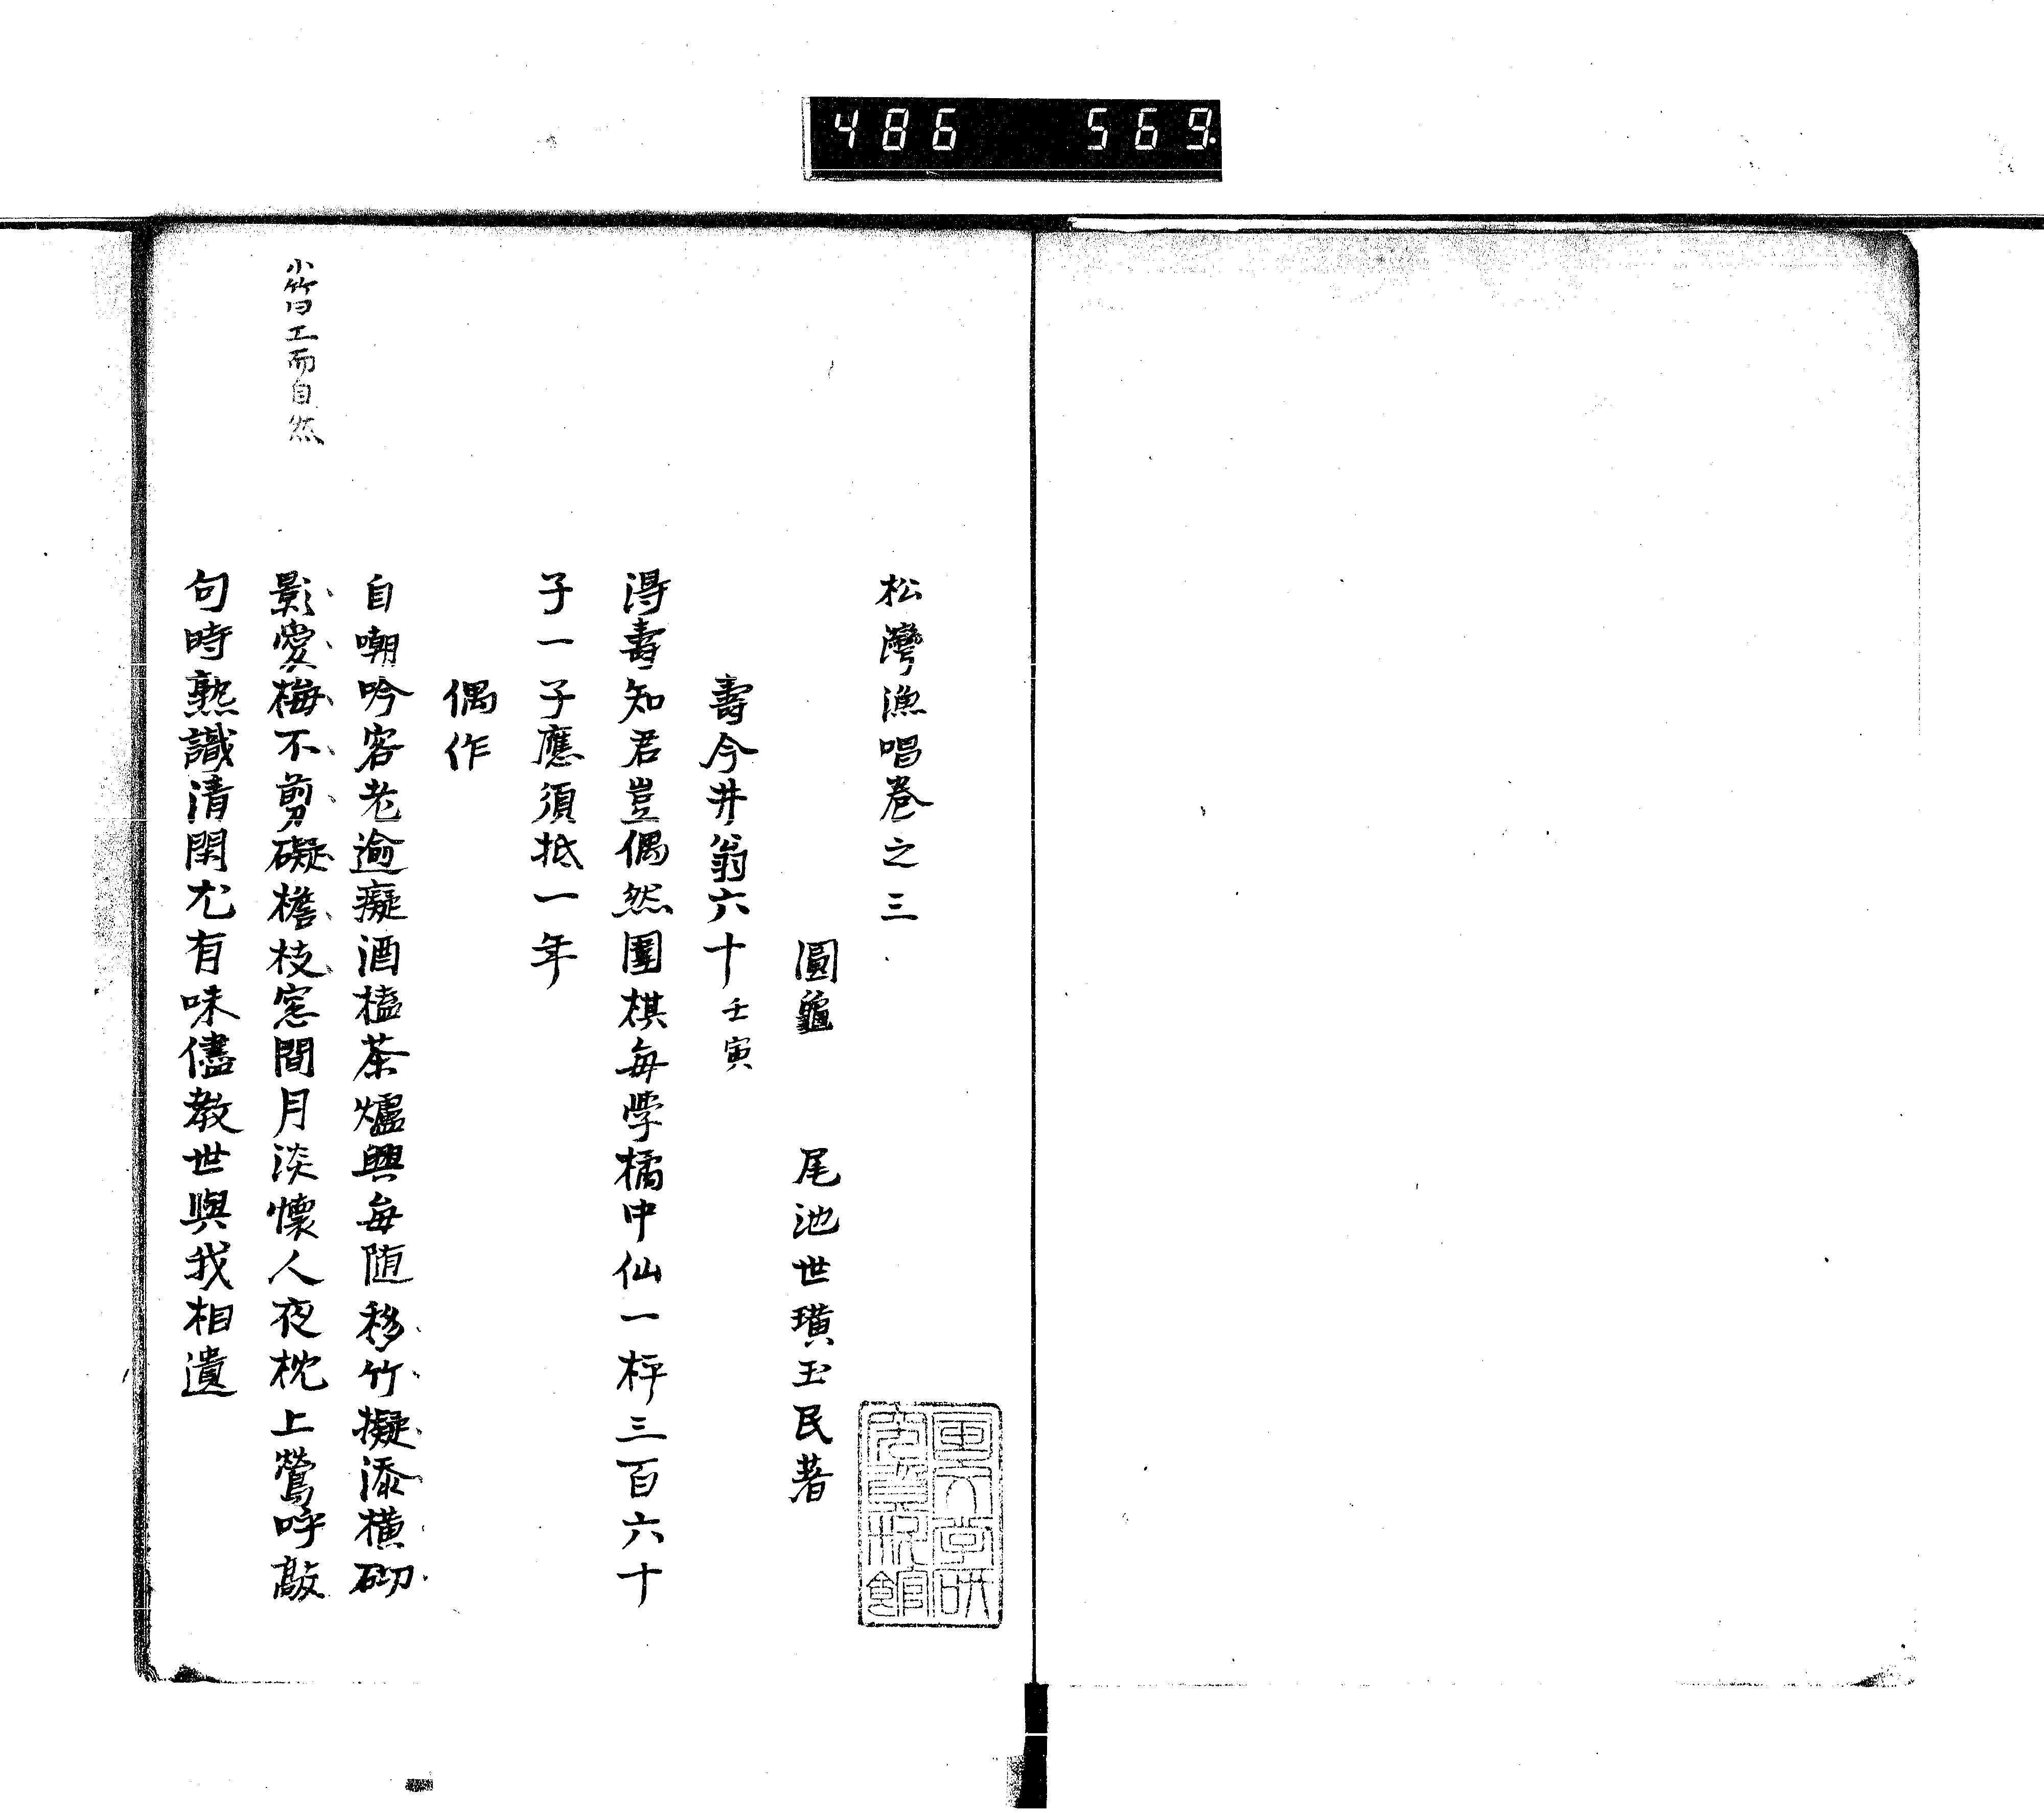 486 569
松灣漁唱卷之三
圓龜 尾池世璜玉民著
壽今井翁六十 壬寅
淂壽知君豈偶然圍棋每学橘中仙一枰三百六十
子一子應須抵一年
偶作
自嘲吟客老逾癡酒榼茶爐興每随移竹擬添橫砌
影愛梅不剪礙檐枝窓間月淡懷人夜枕上鶯呼敲
句時熟識清閑尤有味儘教世與我相遺
小竹曰工而自然